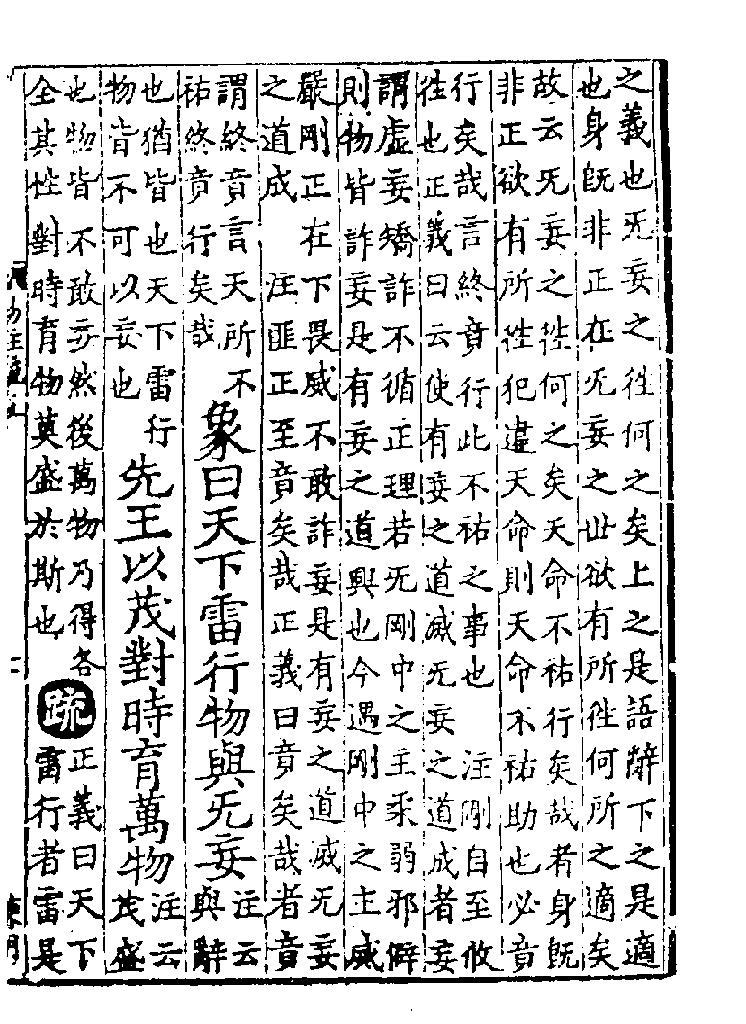 之義也无妄之徃何之矣上之是語辭下之是適
也身旣非正在无妄之世欲有所徃何所之適矣
故云无妄之徃何之矣天命不祐行矣哉者身旣
非正欲有所徃犯違天命則天命不祐助也必竟
行矣哉言終竟行此不祐之事也 注剛自至攸
徃也正義曰云使有妄之道滅无妄之道成者妄
謂虛妄矯詐不循正理若无剛中之主柔弱邪僻
則物皆詐妄是有妄之道興也今遇剛中之主威
嚴剛正在下畏威不敢詐妄是有妄之道滅无妄
之道成 注匪正至竟矣哉正義曰竟矣哉者竟
謂終竟言天所不
祐終竟行矣哉
象曰天下雷行物與无妄
注云
與辭
也猶皆也天下雷行
物皆不可以妄也
先王以茂對時育萬物
注云
茂盛
也物皆不敢妄然後萬物乃得各
全其性對時育物莫盛於斯也
疏
正義曰天下
雷行者雷是